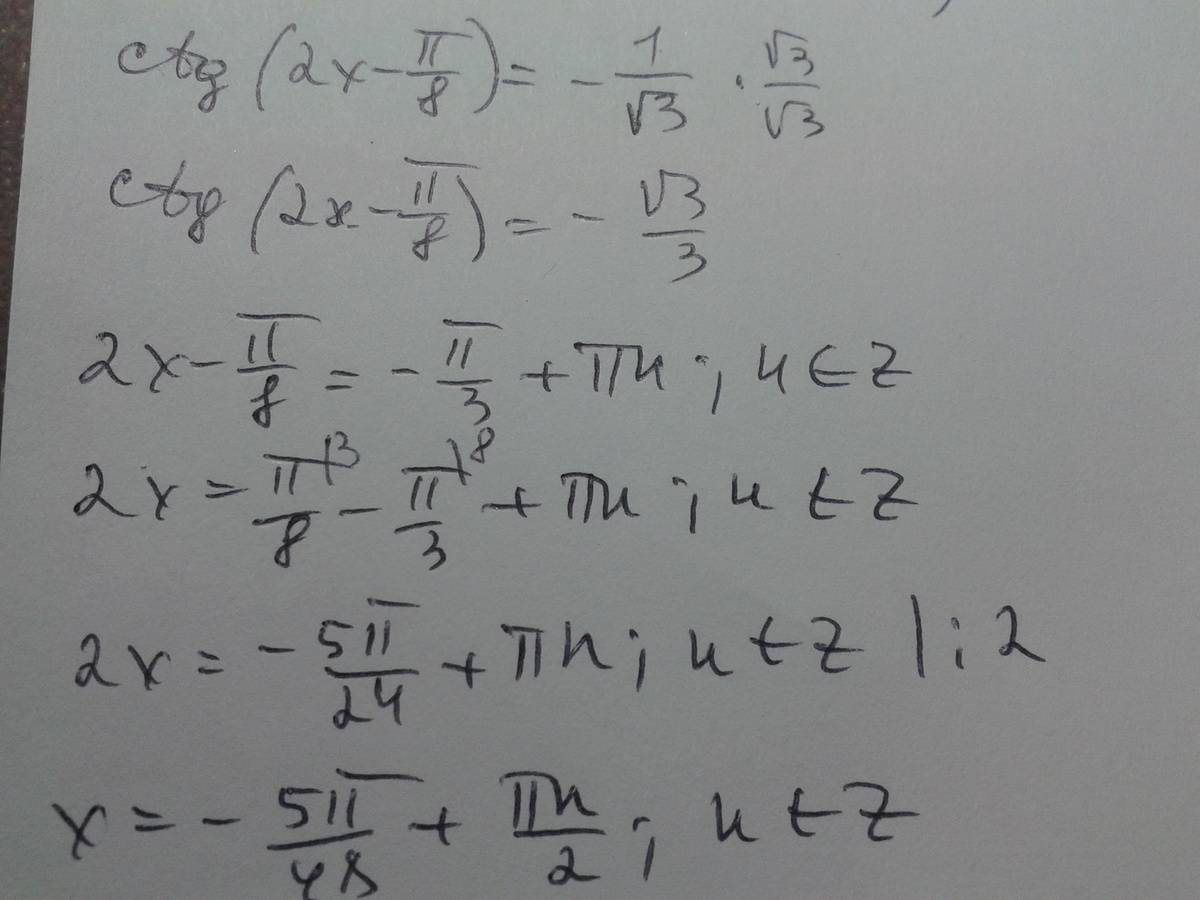 ctg (2x - π/8) = - 1/√3 · √3/√3
ctg (2x - π/8) = - √3/3
2x - π/8 = - π/3 + πn ; n ∈ Z
2x = π/8 |3 - π/3 |8 + πn ; n ∈ Z
2x = - 5π/24 + πn ; n ∈ Z | : 2
x = - 5π/48 + πn/2 ; n ∈ Z